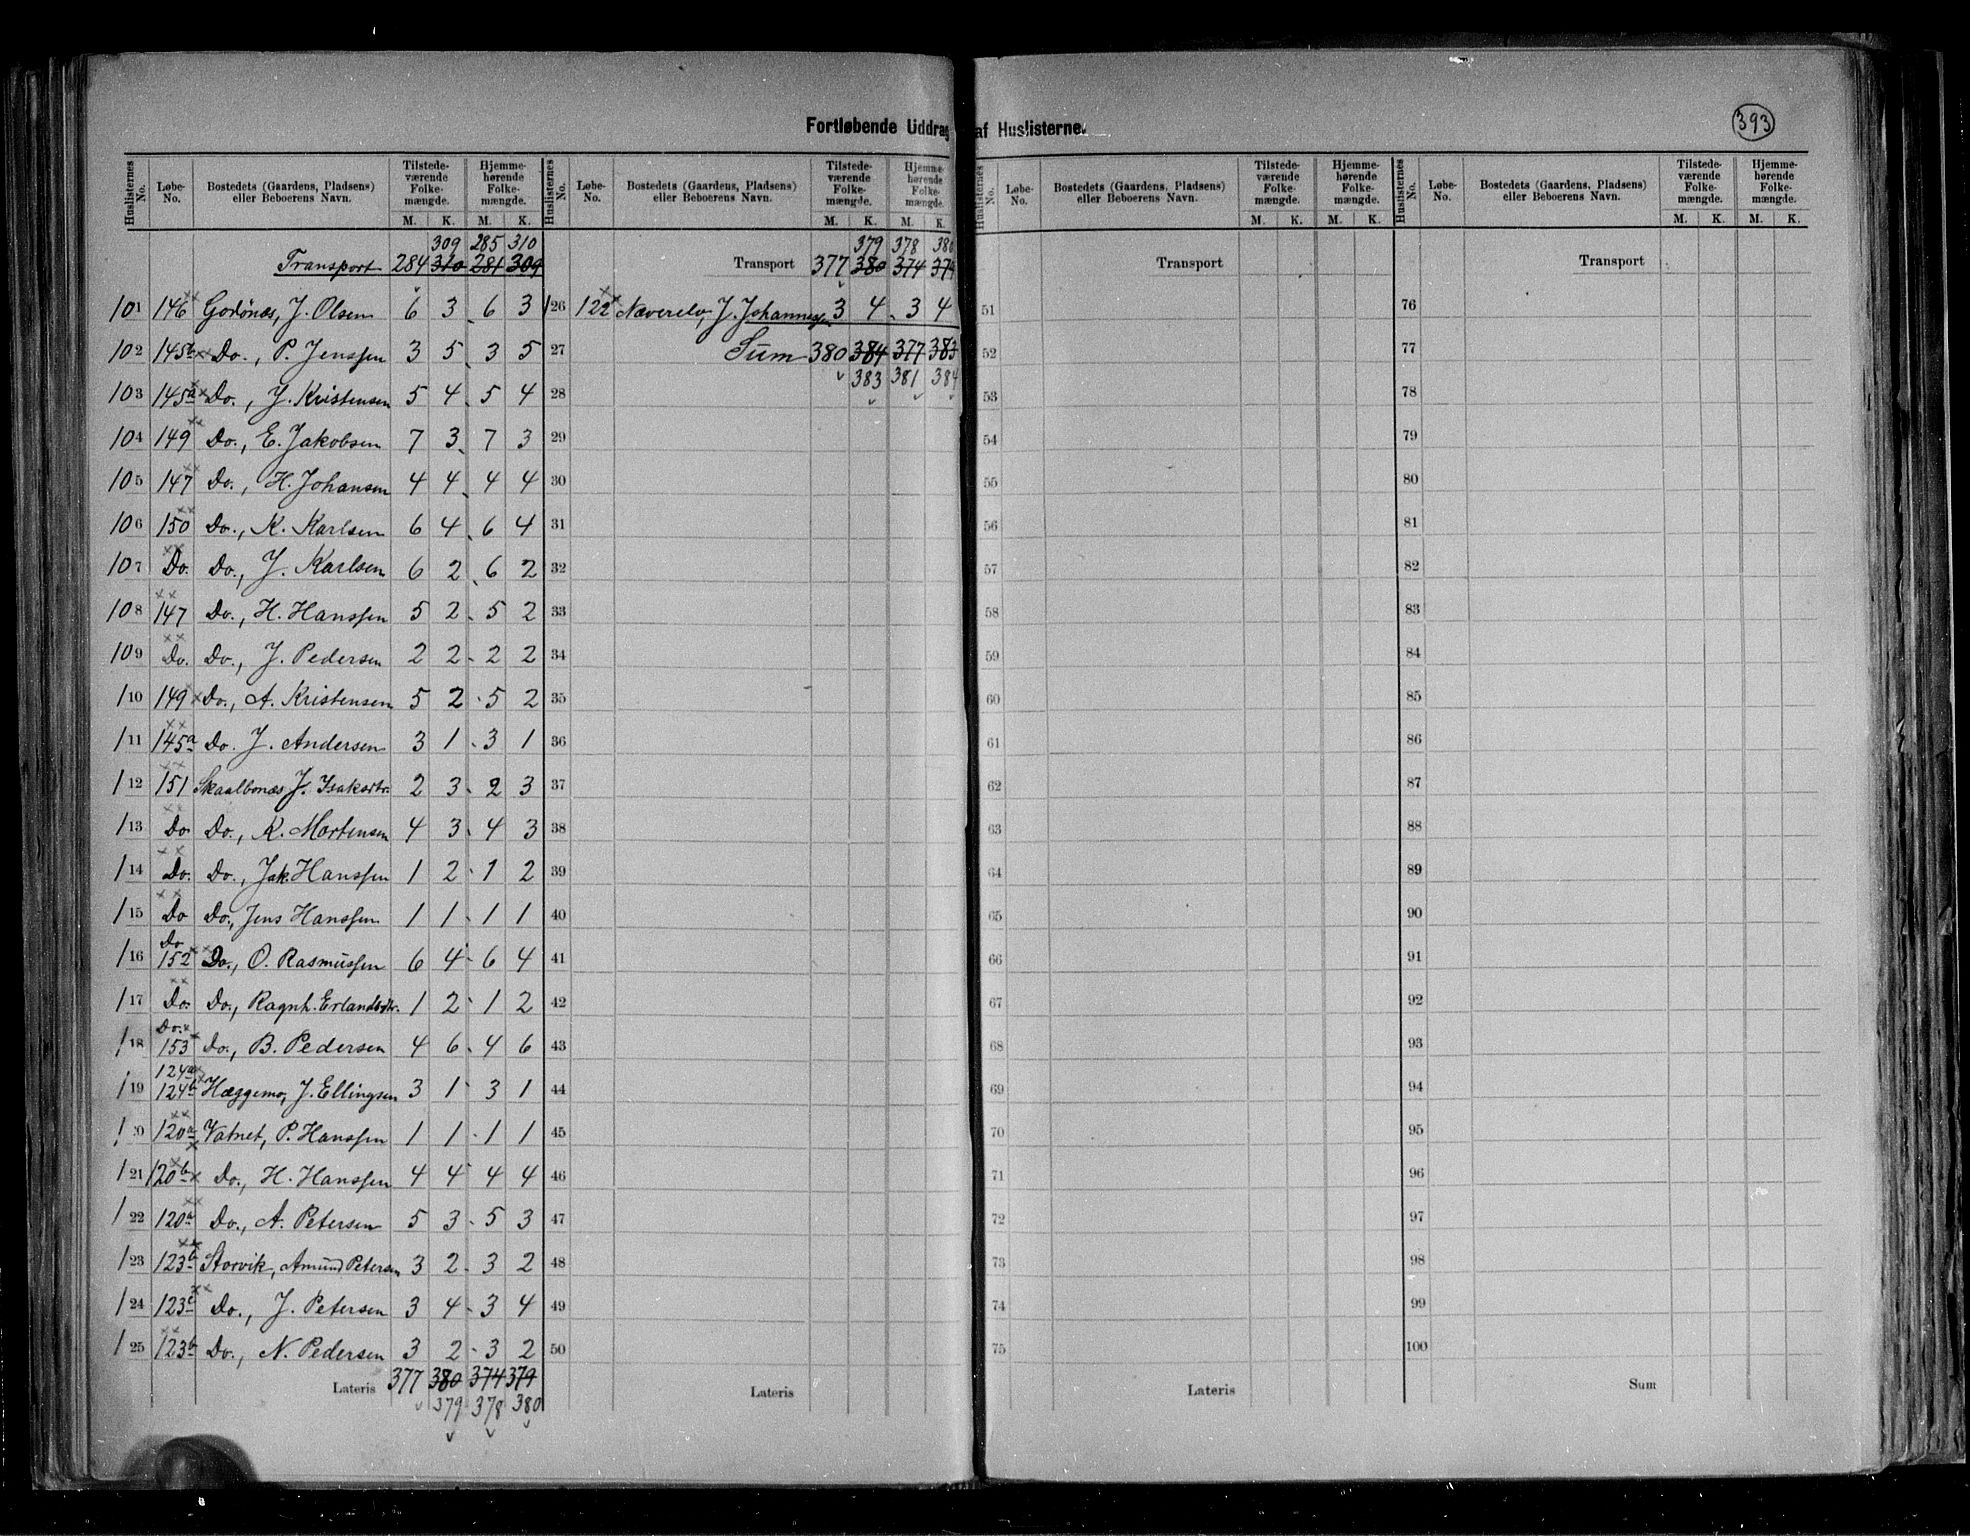 393
Fortløbende Uddrag af Huslisterne.
Huslisternes No. Løbe-No. Bostedets (Gaardens, Pladsens) eller Beboerens Navn. Tilstedeværende Folkemængde. Hjemmehørende Folkemængde.
M. K. M. K.
309 285 310
Transport 284 310 281 309
101 146 Godønæs, J. Olsen 6 3 6 3
102 145b Do., P. Jenssen 3 5 3 5
103 145a Do., J. Kristensen 5 4 5 4
104 149 Do., E. Jakobsen 7 3 7 3
105 147 Do., H. Johansen 4 4 4 4
106 150 Do., K. Karlsen 6 4 6 4
107 Do. Do., J. Karlsen 6 2 6 2
108 147 Do., H. Hanssen 5 2 5 2
109 Do. Do., J. Pedersen 2 2 2 2
110 149 Do., A. Kristensen 5 2 5 2
111 145a Do. J. Andersen 3 1 3 1
112 151 Skaalbonæs J. Isaksdtr. 2 3 2 3
113 Do. Do., K. Mortensen 4 3 4 3
114 Do. Do., Jak. Hanssen 1 2 1 2
115 Do Do., Jens Hanssen 1 1 1 1
116 Do 152 Do., O. Rasmussen 6 4 6 4
117 Do. Do., Ragnh. Erlandsdtr. 1 2 1 2
118 Do. 153 Do., B. Pedersen 4 6 4 6
119 124a 124b Hæggemo, J. Ellingsen 3 1 3 1
120 120a Vatnet, P. Hanssen 1 1 1 1
121 120b Do., H. Hanssen 4 4 4 4
122 120a Do., A. Petersen 5 3 5 3
123 123b Storvik, Amund Petersen 3 2 3 2
124 123c Do., J. Petersen 3 4 3 4
125 123b Do., N. Pedersen 3 2 3 2
Lateris 377 380 374 379
379 378 380
Huslisternes No. Løbe-No. Bostedets (Gaardens, Pladsens) eller Beboerens Navn. Tilstedeværende Folkemængde. Hjemmehørende Folkemængde.
M. K. M. K.
379 378 380
Transport 377 380 374 379
126 122 Næverelv, J. Johannes 3 4 3 4
27 Sum 380 384 377 383
383 381 384
28
29
30
31
32
33
34
35
36
37
38
39
40
41
42
43
44
45
46
47
48
49
50
Lateris
Huslisternes No. Løbe-No. Bostedets (Gaardens, Pladsens) eller Beboerens Navn. Tilstedeværende Folkemængde. Hjemmehørende Folkemængde.
M. K. M. K.
Transport
51
52
53
54
55
56
57
58
59
60
61
62
63
64
65
66
67
68
69
70
71
72
73
74
75
Lateris
Huslisternes No. Løbe-No. Bostedets (Gaardens, Pladsens) eller Beboerens Navn. Tilstedeværende Folkemængde. Hjemmehørende Folkemængde.
M. K. M. K.
Transport
76
77
78
79
80
81
82
83
84
85
86
87
88
89
90
91
92
93
94
95
96
97
98
99
100
Sum